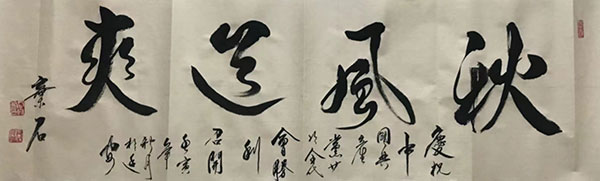 秋風送爽
慶祝
中
國共
產
黨廿
次全代
會勝
利
召開
壬寅
年
秋月
於延
安
石